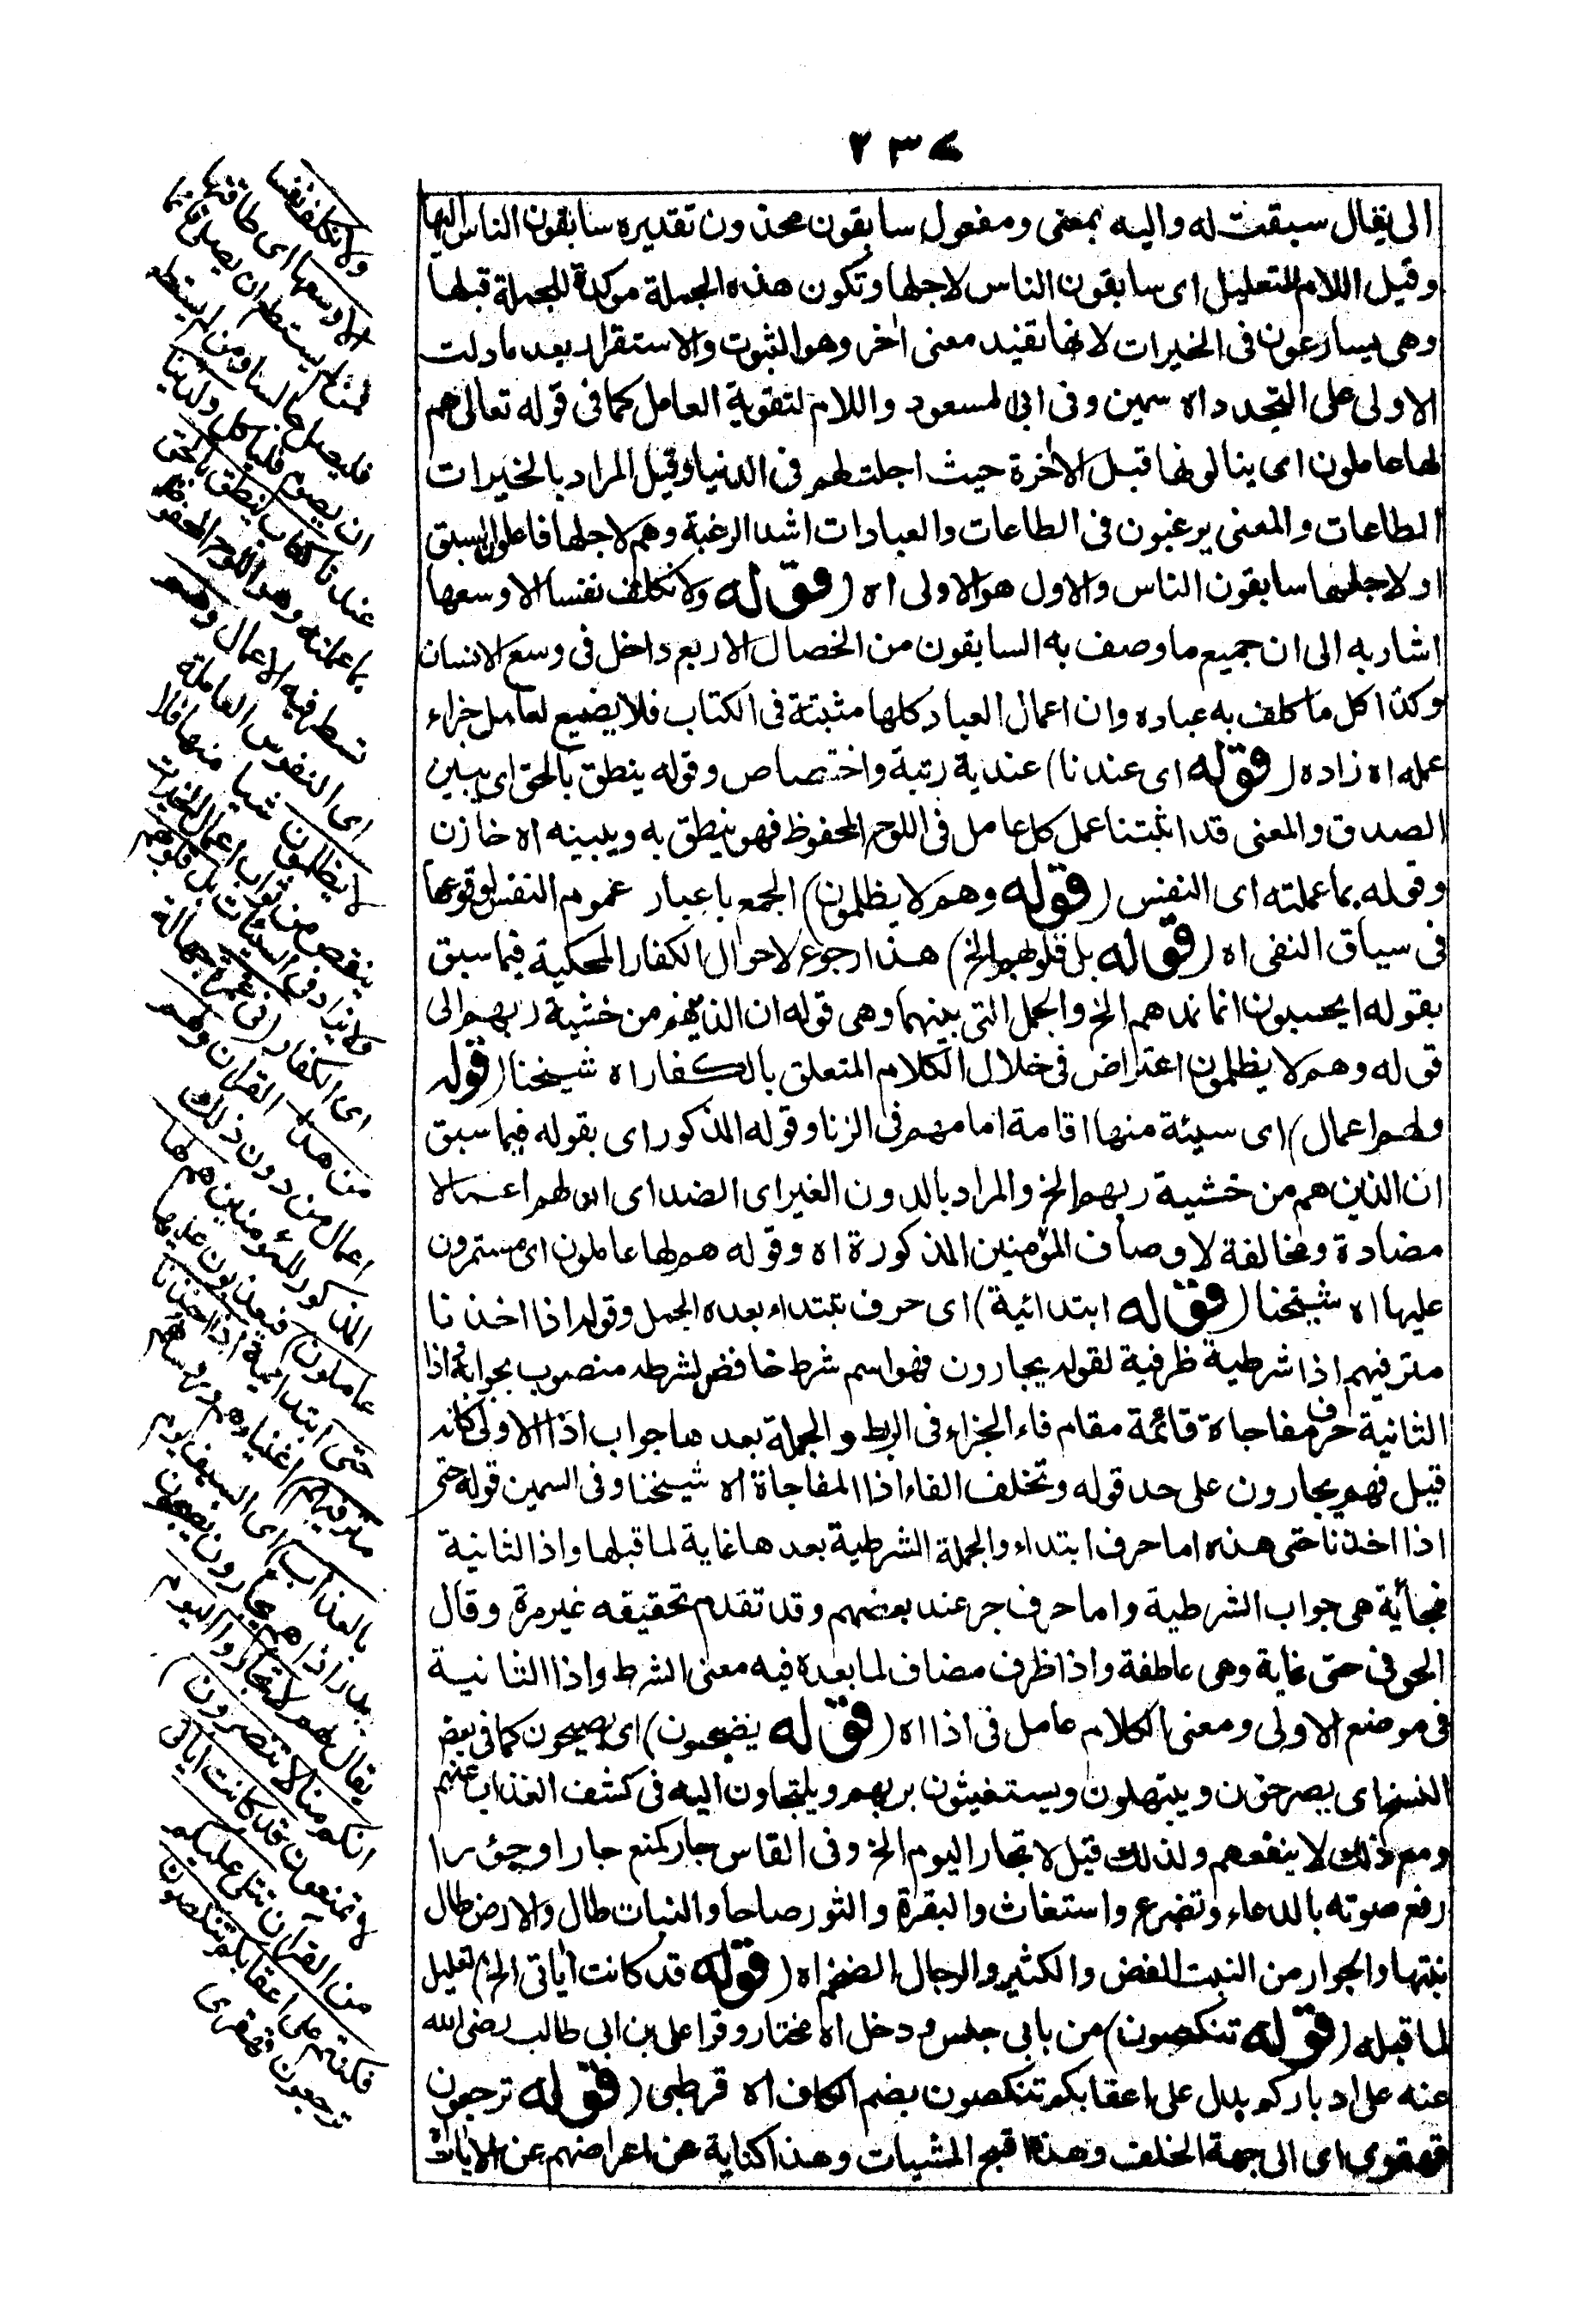 ٢٣٧
الى يقال سبقت له واليه بمعنى ومفعول سابقون محذوف تقديره سابقون الناس اليها
وقيل اللام للتعليل اى سابقون الناس لاجلها وتكون هذه الجملة مؤكدة للجملة قبلها
وهى يسارعون فى الخيرات لانها تفيد معنى اخر وهو الثبوت والاستقرار بعد ما دلت
الاولى على التجدد اه سمين وفى ابى السعود واللام لتقوية العامل كما فى قوله تعالى هم
لها عاملون اى ينالونها قبل الاخرة حيث اجلت لهم فى الدنيا وقيل المراد بالخيرات
الطاعات والمعنى يرغبون فى الطاعات والعبادات اشد الرغبة وهم لاجلها فاعلون السبق
او لاجلها سابقون الناس والاول هو الاولى اه (قوله ولا نكلف نفسا الا وسعها
اشار به الى ان جميع ما وصف به السابقون من الخصال الاربع داخل فى وسع الانسان
وكذا كل ما كلف به عباده وان اعمال العباد كلها مثبتة فى الكتاب فلا يضيع لعامل جزاء
عمله اه زاده (قوله اى عندنا) عندية رتبة واختصاص وقوله ينطق بالحق اى يبين
الصدق والمعنى قد اثبتنا عمل كل عامل فى اللوح المحفوظ فهو ينطق به ويبينه اه خازن
وقوله بما عملته اى النفس (قوله وهم لا يظلمون) الجمع باعتبار عموم النفس لوقوعها
فى سياق النفى اه (قوله بل قلوبهم الخ) هذا رجوع لاحوال الكفار المحكية فيما سبق
بقوله ايحسبون انما نمدهم الخ والجمل التى بينهما وهى قوله ان الذين هم من خشية ربهم الى
قوله وهم لا يظلمون اعتراض فى خلال الكلام المتعلق بالكفار اه شيخنا (قوله
ولهم اعمال) اى سيئة منها اقامة امامهم فى الزنا وقوله المذكور اى بقوله فيما سبق
ان الذين هم من خشية ربهم الخ والمراد بالدون الغير اى الضد اى ان لهم اعمالا
مضادة ومخالفة لاوصاف المؤمنين المذكورة اه وقوله هم لها عاملون اى مستمرون
عليها اه شيخنا (قوله ابتدائية) اى حرف تبتداء بعده الجمل وقوله اذا اخذنا
مترفيهم اذا شرطية ظرفية لقوله يجارون فهو اسم شرط خافض لشرطه منصوب بجوابه اذا
الثانية حرف مفاجاة قائمة مقام فاء الجزاء فى الربط والجملة بعدها جواب اذا الاولى كانه
قيل فهم يجارون على حد قوله وتخلف الفاء اذا المفاجاة اه شيخنا وفى السمين قوله حتى
اذا اخذنا حتى هذه اما حرف ابتداء والجملة الشرطية بعدها غاية لما قبلها واذا الثانية
فجأية هى جواب الشرطية واما حرف جر عند بعضهم وقد تقدم تحقيقه غير مرة وقال
الحوفى حتى غاية وهى عاطفة واذا ظرف مضاف لما بعده فيه معنى الشرط واذا الثانية
فى موضع الاولى ومعنى الكلام عامل فى اذا اه (قوله يضجون) اى يصيحون كما فى بعض
النسخ اى يصرخون ويبتهلون ويستغيثون بربهم ويلتجاون اليه فى كشف العذاب عنهم
ومع ذلك لا ينفعهم ولذلك قيل لا تجار اليوم الخ وفى القاس جار كمنع جارا وجؤرا
رفع صوته بالدعاء وتضرع واستغاث والبقرة والثور صاحا والنبات طال والارض طال
نبتها والجوار من النبت الغض والكثير والرجال الضخم اه (قوله قد كانت اياتى الخ) تعليل
لما قبله (قوله تنكصون) من بابى جلس ودخل اه مختار وقرا على بن ابى طالب رضى الله
عنه على ادباركم بدل على اعقابكم تنكصون بضم الكاف اه قرطبى (قوله ترجعون
قهقرى اى الى جهة الخلف وهذا اقبح المشيات وهذا كناية عن اعراضهم عن الايات
ولا نكلف نفسا
الا وسعها اى طاقتها
فمن لم يستطع ان يصلى قائما
فليصل جالسا ومن لم يستطع
ان يصوم فلياكل ولدينا
عندنا كتاب ينطق بالحق
بما عملته وهو اللوح المحفوظ
تسطر فيه الاعمال وهم
اى النفوس العاملة
لا يظلمون شيا منها فلا
ينقص من ثواب اعمال الخيرات
ولا يزاد فى السيئات بل قلوبهم
اى الكفار فى غمرة جهالة
من هذا القران ولهم
اعمال من دون ذلك
المذكور للمؤمنين هم لها
عاملون فيعذبون عليها
حتى ابتدائية اذا اخذنا
مترفيهم اغنياءهم ورؤساهم
بالعذاب اى السيف يوم
بدر اذا هم يجارون يضجون
يقال لهم لا تجاروا اليوم
انكم منا لا تنصرون
لا تمنعون قد كانت اياتى
من القران تتلى عليكم
فكنتم على اعقابكم تنكصون
ترجعون قهقرى